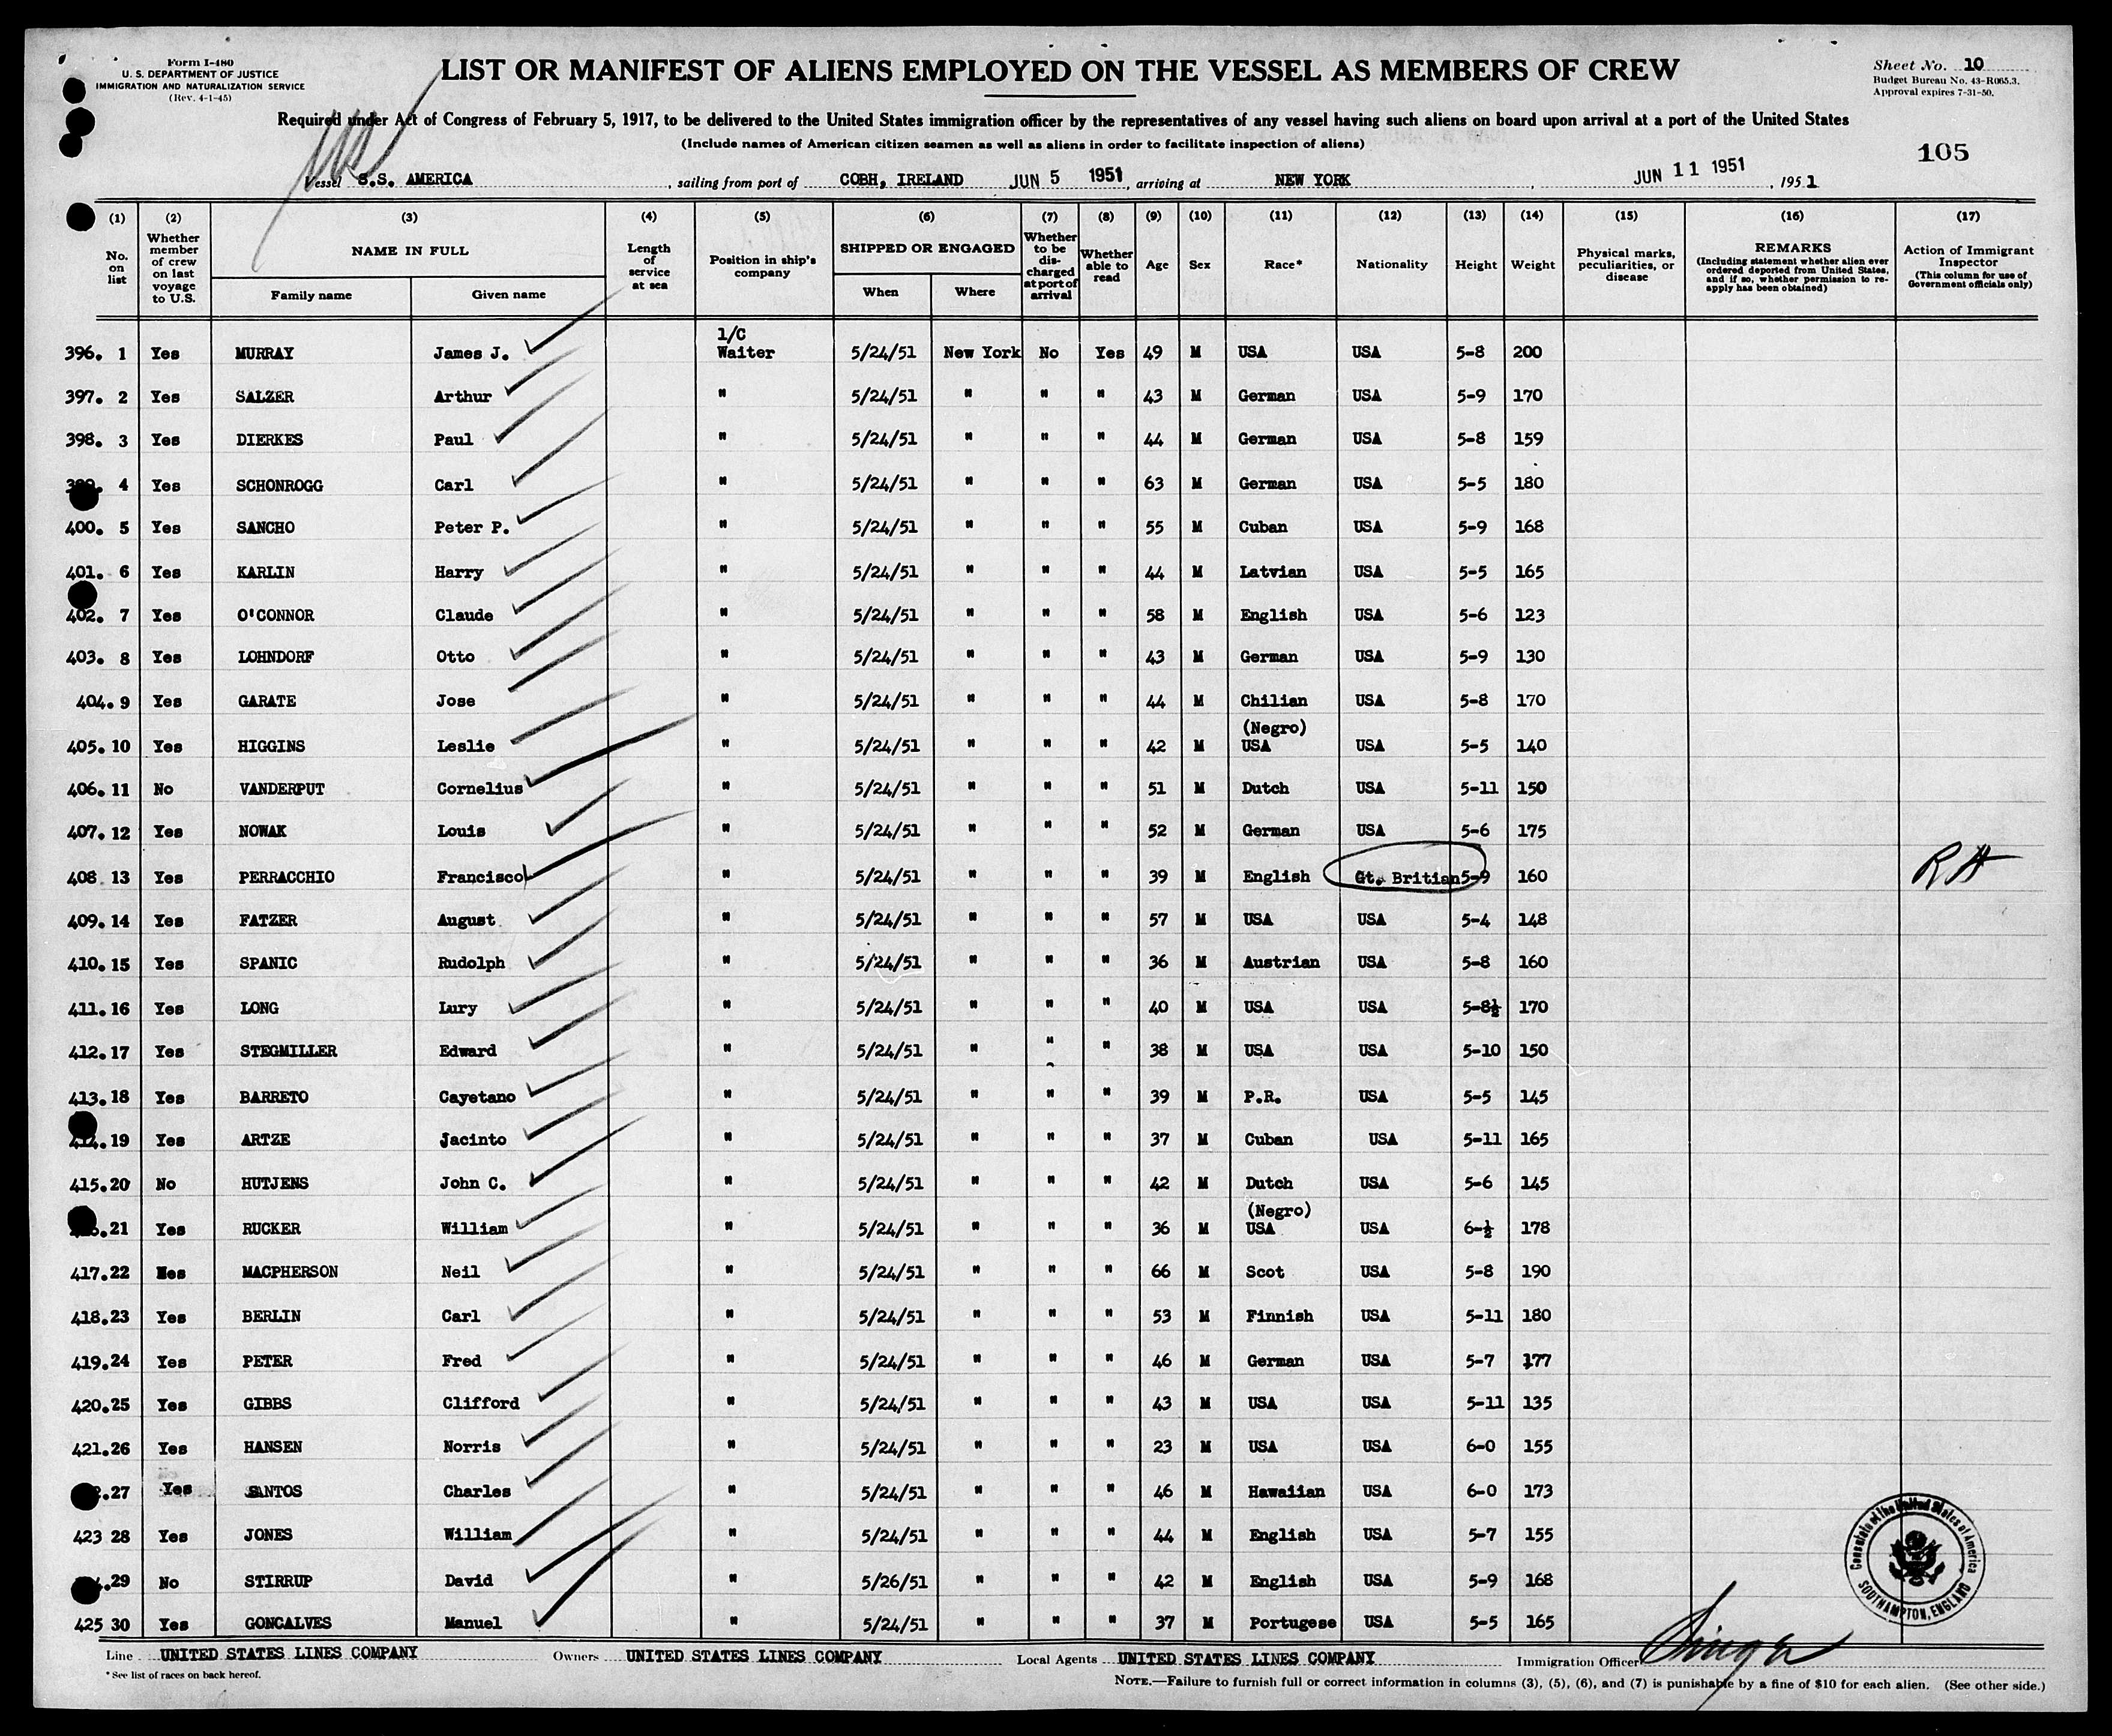 Form I-480
U. S. DEPARTMENT OF JUSTICE
IMMIGRATION AND NATURALIZATION SERVICE
(Rev. 4-1-45)
LIST OR MANIFEST OF ALIENS EMPLOYED ON THE VESSEL AS MEMBERS OF CREW
Sheet No. 10
Budget Bureau No. 43-R065.3.
Approval expires 7-31-50.
Required under Act of Congress of February 5, 1917, to be delivered to the United States immigration officer by the representatives of any vessel having such aliens on board upon arrival at a port of the United States
(Include names of American citizen seamen as well as aliens in order to facilitate inspection of aliens)
105
Vessel S.S. AMERICA, sailing from port of COBH, IRELAND JUN 5 1951, arriving at NEW YORK, JUN 11 1951, 1951
(1) (2) (3) (4) (5) (6) (7) (8) (9) (10) (11) (12) (13) (14) (15) (16) (17)
No. on list
Whether member of crew on last voyage to U.S.
NAME IN FULL
Family name
Given name
Length of service at sea
Position in ship's company
SHIPPED OR ENGAGED
When
Where
Whether to be discharged at port of arrival
Whether able to read
Age
Sex
Race*
Nationality
Height
Weight
Physical marks, peculiarities, or disease
REMARKS
(Including statement whether alien ever ordered deported from United States, and if so, whether permission to reapply has been obtained)
Action of Immigrant Inspector
(This column for use of Government officials only)
1/C
396. 1 Yes MURRAY James J. Waiter 5/24/51 New York No Yes 49 M USA USA 5-8 200
397. 2 Yes SALZER Arthur " 5/24/51 " " " 43 M German USA 5-9 170
398. 3 Yes DIERKES Paul " 5/24/51 " " " 44 M German USA 5-8 159
399. 4 Yes SCHONROGG Carl " 5/24/51 " " " 63 M German USA 5-5 180
400. 5 Yes SANCHO Peter P. " 5/24/51 " " " 55 M Cuban USA 5-9 168
401. 6 Yes KARLIN Harry " 5/24/51 " " " 44 M Latvian USA 5-5 165
402. 7 Yes O'CONNOR Claude " 5/24/51 " " " 58 M English USA 5-6 123
403. 8 Yes LOHNDORF Otto " 5/24/51 " " " 43 M German USA 5-9 130
404. 9 Yes GARATE Jose " 5/24/51 " " " 44 M Chilian USA 5-8 170
(Negro)
405. 10 Yes HIGGINS Leslie " 5/24/51 " " " 42 M USA USA 5-5 140
406. 11 No VANDERPUT Cornelius " 5/24/51 " " " 51 M Dutch USA 5-11 150
407. 12 Yes NOWAK Louis " 5/24/51 " " " 52 M German USA 5-6 175
408. 13 Yes PERRACCHIO Francisco " 5/24/51 " " " 39 M English Gt. Britian 5-9 160 RH
409. 14 Yes FATZER August " 5/24/51 " " " 57 M USA USA 5-4 148
410. 15 Yes SPANIC Rudolph " 5/24/51 " " " 36 M Austrian USA 5-8 160
411. 16 Yes LONG Lury " 5/24/51 " " " 40 M USA USA 5-8½ 170
412. 17 Yes STEGMILLER Edward " 5/24/51 " " " 38 M USA USA 5-10 150
413. 18 Yes BARRETO Cayetano " 5/24/51 " " " 39 M P.R. USA 5-5 145
414. 19 Yes ARTZE Jacinto " 5/24/51 " " " 37 M Cuban USA 5-11 165
415. 20 No HUTJENS John C. " 5/24/51 " " " 42 M Dutch USA 5-6 145
(Negro)
.21 Yes RUCKER William " 5/24/51 " " " 36 M USA USA 6-½ 178
417. 22 Yes MACPHERSON Neil " 5/24/51 " " " 66 M Scot USA 5-8 190
418. 23 Yes BERLIN Carl " 5/24/51 " " " 53 M Finnish USA 5-11 180
419. 24 Yes PETER Fred " 5/24/51 " " " 46 M German USA 5-7 177
420. 25 Yes GIBBS Clifford " 5/24/51 " " " 43 M USA USA 5-11 135
421. 26 Yes HANSEN Norris " 5/24/51 " " " 23 M USA USA 6-0 155
.27 Yes SANTOS Charles " 5/24/51 " " " 46 M Hawaiian USA 6-0 173
423 28 Yes JONES William " 5/24/51 " " " 44 M English USA 5-7 155
.29 No STIRRUP David " 5/26/51 " " " 42 M English USA 5-9 168
425 30 Yes GONCALVES Manuel " 5/24/51 " " " 37 M Portugese USA 5-5 165
Consulate of the United States of America
SOUTHAMPTON, ENGLAND
Line UNITED STATES LINES COMPANY Owners UNITED STATES LINES COMPANY Local Agents UNITED STATES LINES COMPANY Immigration Officer
* See list of races on back hereof.
NOTE.—Failure to furnish full or correct information in columns (3), (5), (6), and (7) is punishable by a fine of $10 for each alien. (See other side.)